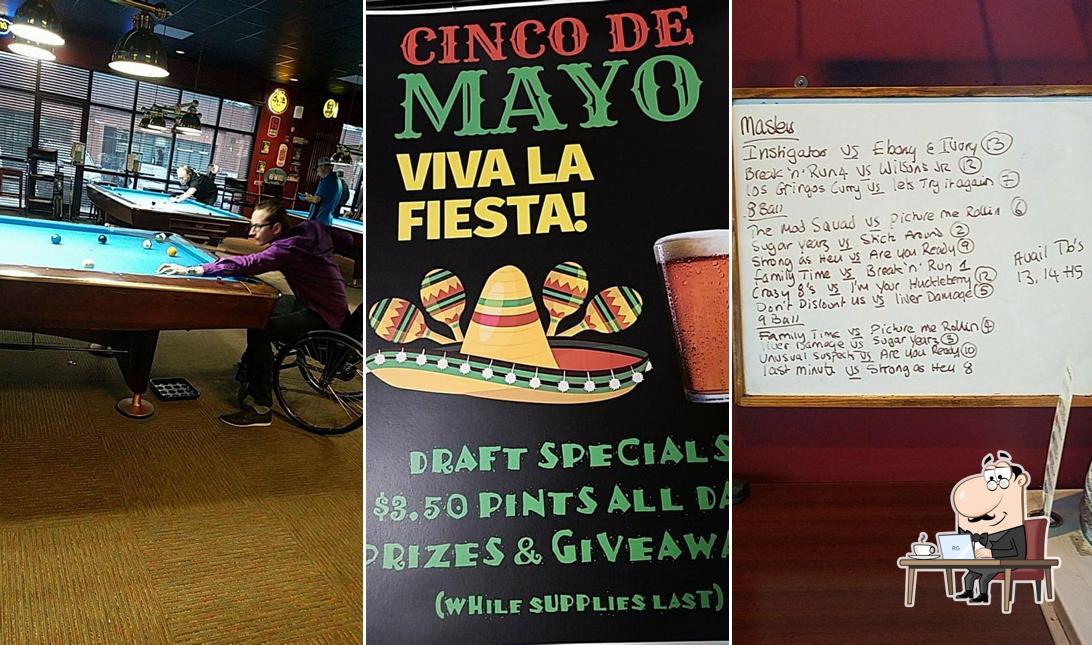 CINCO DE
MAYO
VIVA LA
FIESTA!
DRAFT SPECIALS
$3.50 PINTS ALL DA
PRIZES & GIVEAWA
(WHILE SUPPLIES LAST)
Masters
Instigator VS Ebony & Ivory 13
Break 'n' Run 4 VS Wilsons JR 12
Los Gringos Curry VS lets Try it again 7
8 Ball
The Mod Squad vs Picture me Rollin 6
Sugar years vs Stick Around 2
Strong as Hell vs Are you Ready 9
Family Time vs Break 'n' Run 1
Crazy 8's vs I'm your Huckleberry 12
Don't Discount us vs liver Damage 5
9 Ball
Family Time vs Picture me Rollin 4
liver Damage vs Sugar years 3
Unusual Suspect vs Are you Ready 10
last minute vs Strong as Hell 8
Avail Tb's
13, 14 HS
RG